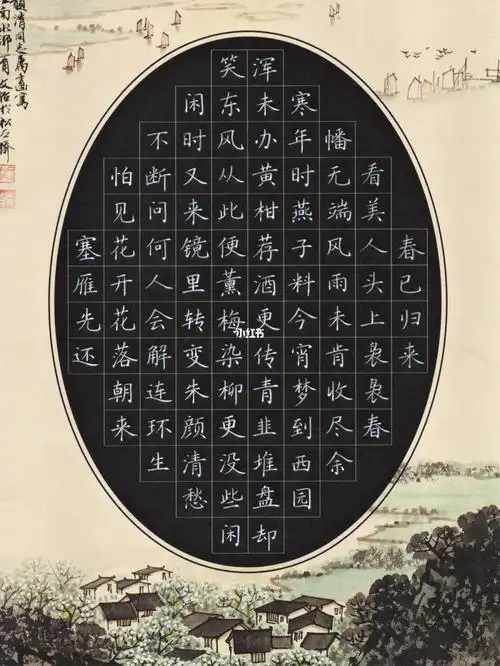 春已归来
看美人头上袅袅春
幡无端风雨未肯收尽余
寒年时燕子料今宵梦到西园
浑未办黄柑荐酒更传青韭堆盘却
笑东风从此便薰梅染柳更没些闲
闲时又来镜里转变朱颜清愁
不断问何人会解连环生
怕见花开花落朝来
塞雁先还
小红书